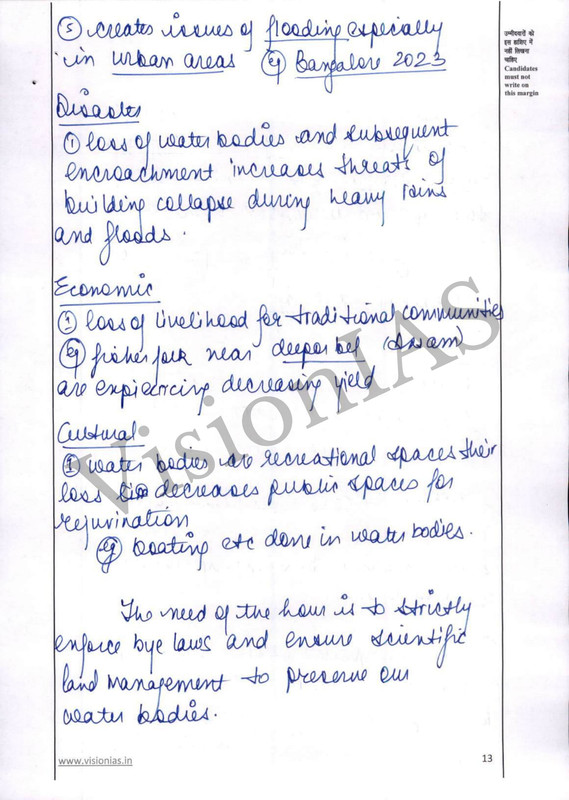 ⑤ creates issues of flooding especially
in urban areas eg Bangalore 2023
उम्मीदवारों को
इस हाशिए में
नहीं लिखना
चाहिए
Candidates
must not
write on
this margin
Disaster
① loss of water bodies and subsequent
encroachment increases threats of
building collapse during heavy rains
and floods.
Economic
① loss of livelihood for traditional communities
eg fisherfolk near deepor bel (Assam)
are expiercing decreasing yield
Cultural
① water bodies are recreational spaces their
loss decreases public spaces for
rejuvination
eg boating etc done in water bodies.
The need of the hour is to strictly
enforce bye laws and ensure scientific
land management to preserve our
water bodies.
VisionIAS
www.visionias.in
13